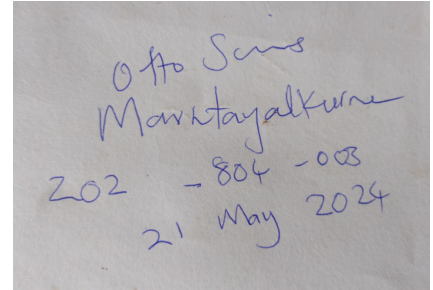 Otto Sums
Marntayalkurne
202 - 804 - 003
21 May 2024